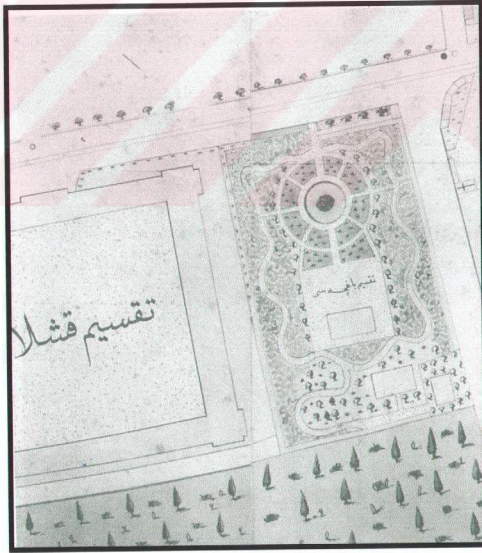 تقسيم قشلا
تقسيم باغچه سی